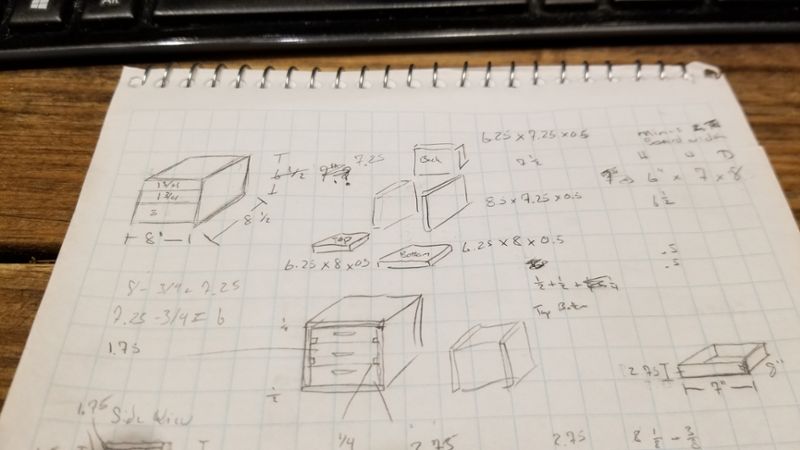 Alt
6.25 x 7.25 x 0.5
Back
7 1/2
board
H W D
6" x 7 x 8
6 1/2
T
6 1/2
7.25
1 3/4
1 3/4
3
8"
8 1/2
8.5 x 7.25 x 0.5
Top
Bottom
6.25 x 8 x 0.5
6.25 x 8 x 0.5
.5
.5
1/2 + 1/2 +
Top Bottom
8 - 3/4 = 7.25
7.25 - 3/4 = 6
1.75
1/4
1/2
2.75
7"
8"
1.75
Side View
1/4
2.75
2.75
8 1/2 - 3/8